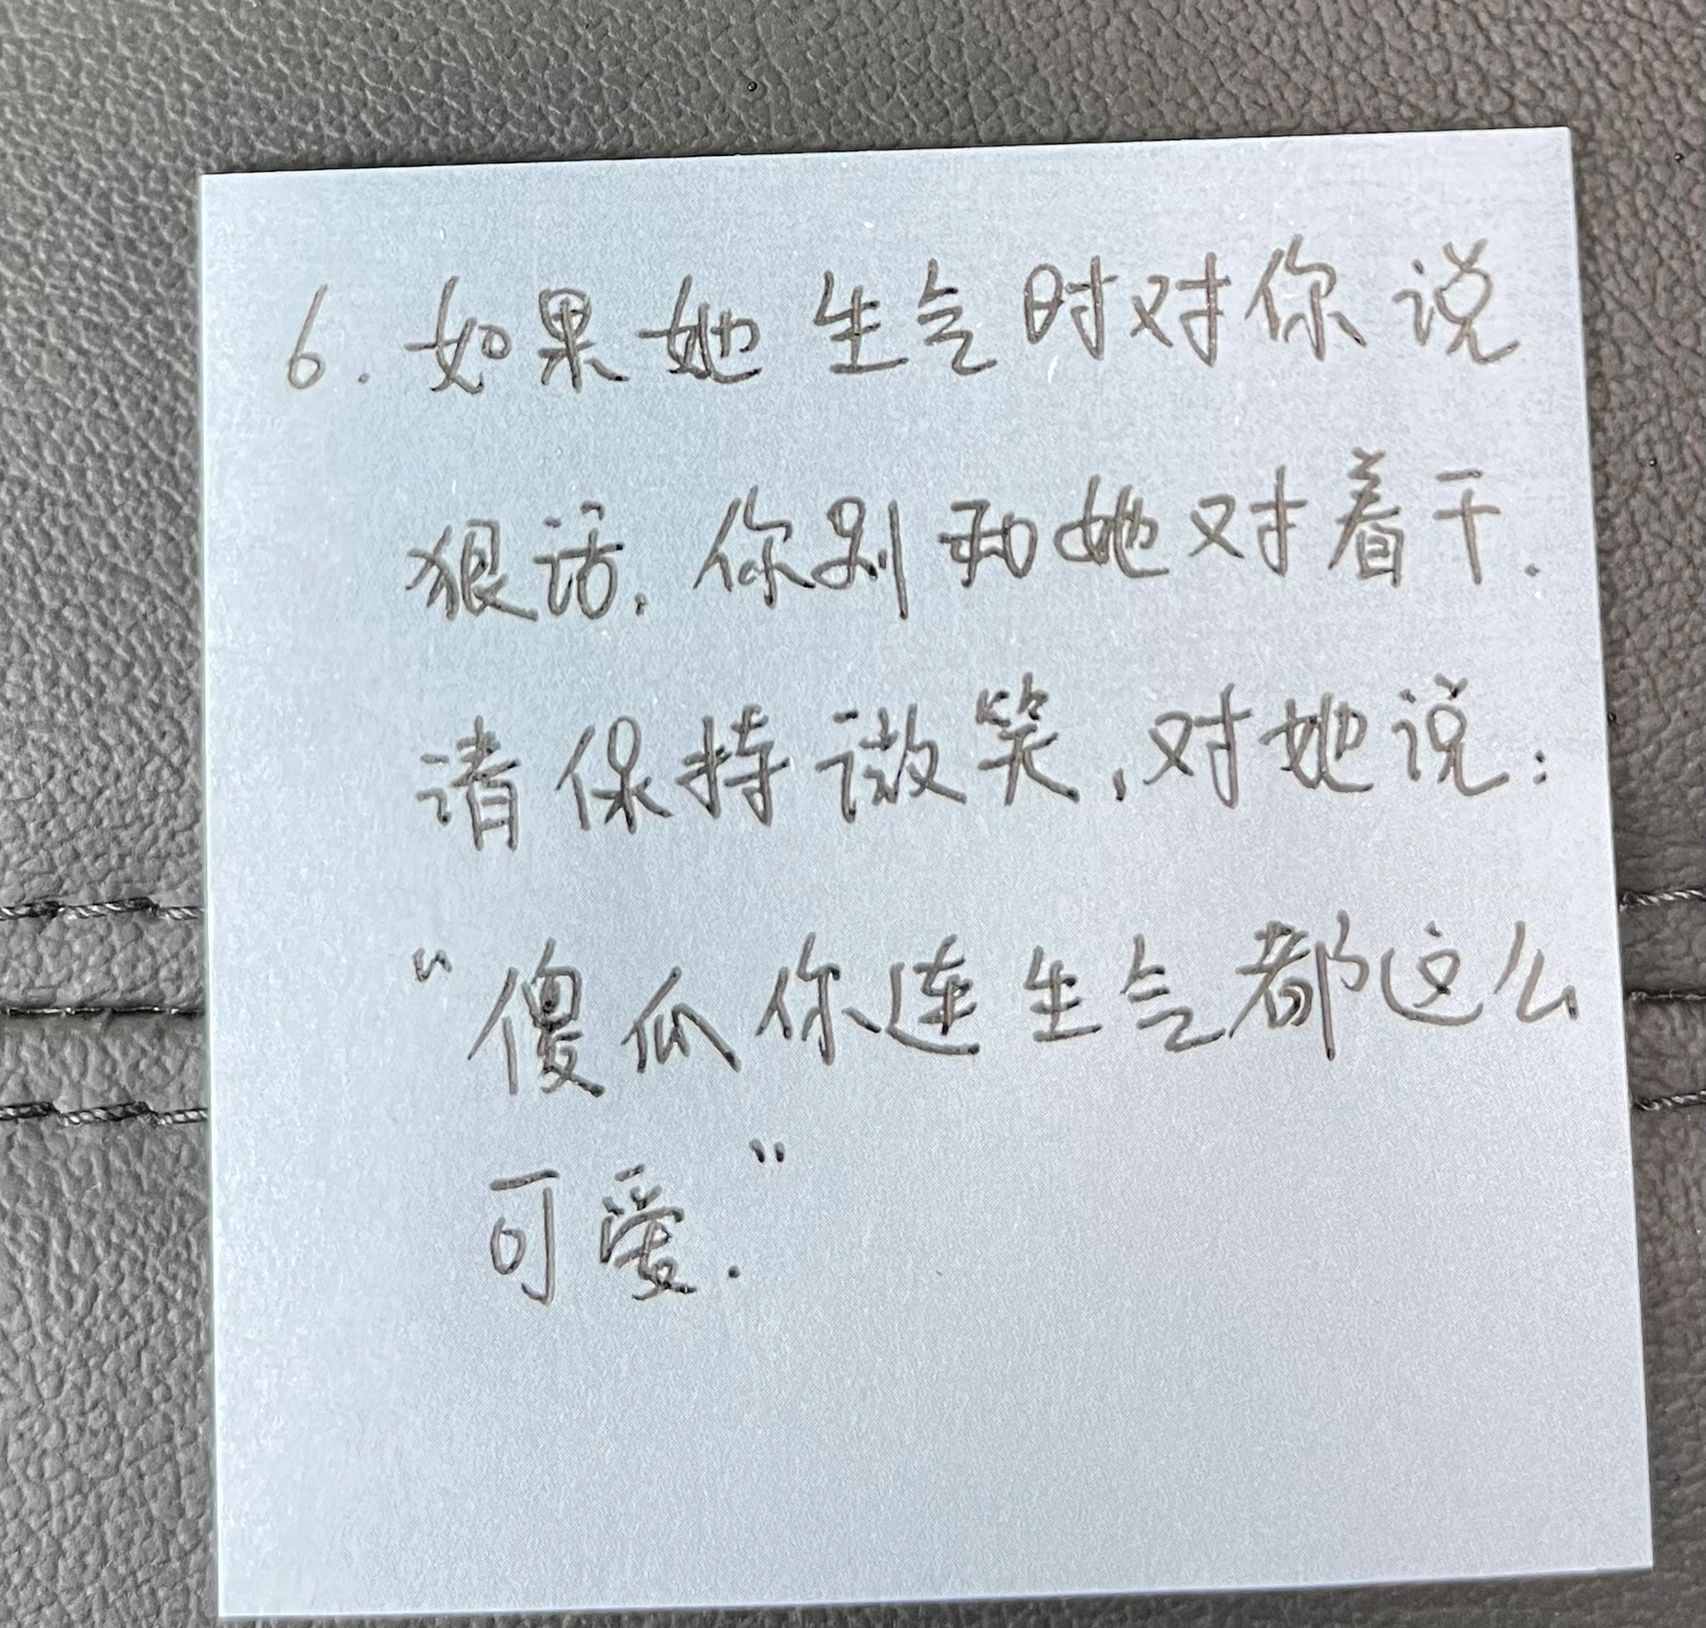 6. 如果她生气时对你说
狠话. 你别和她对着干.
请保持微笑, 对她说:
"傻瓜你连生气都这么
可爱."